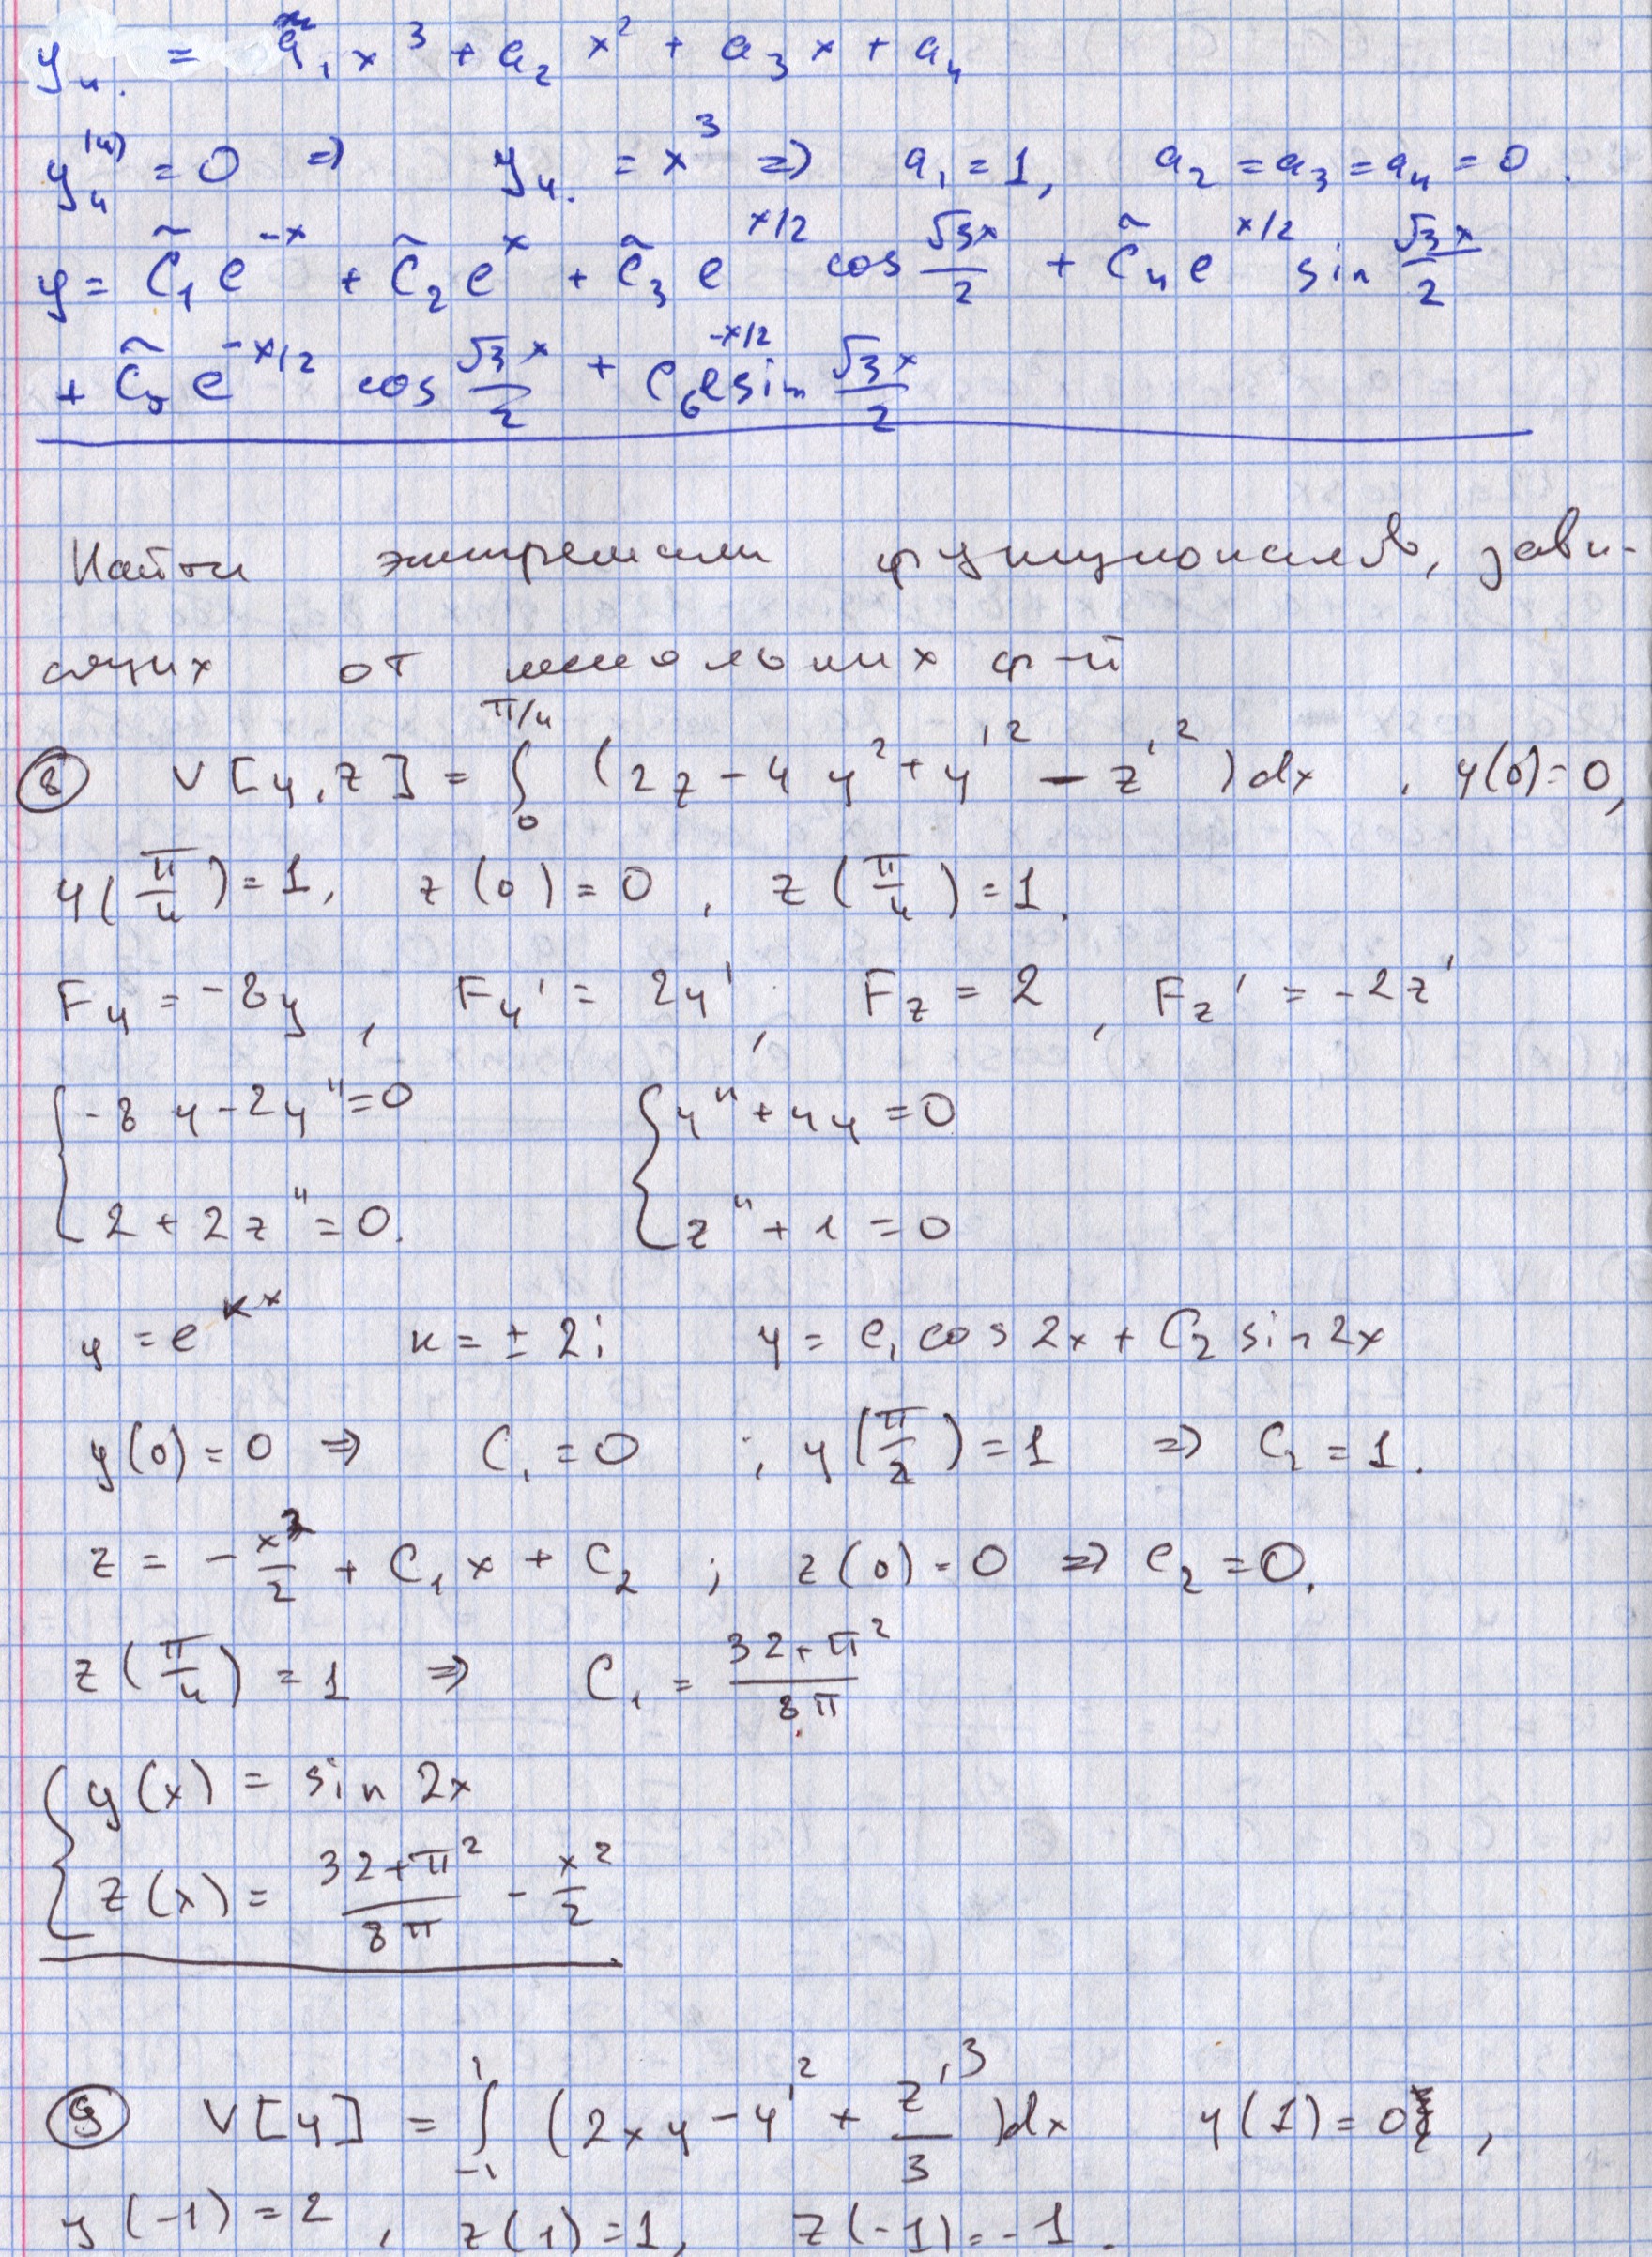 yч. = a₁x³ + a₂x² + a₃x + a₄
yч⁽⁴⁾ = 0 ⇒ yч. = x³ ⇒ a₁ = 1, a₂ = a₃ = a₄ = 0.
y = C̃₁e⁻ˣ + C̃₂eˣ + C̃₃e^(x/2) cos (√3x)/2 + C̃₄e^(x/2) sin (√3x)/2
+ C̃₅e^(-x/2) cos (√3x)/2 + C₆e^(-x/2) sin (√3x)/2
Найти экстремали функционалов, зави-
сящих от нескольких ф-й
⑧ V[y, z] = ∫₀^(π/4) (2z - 4y² + y'² - z'²)dx, y(0) = 0,
y(π/4) = 1, z(0) = 0, z(π/4) = 1.
Fy = -8y, Fy' = 2y', Fz = 2, Fz' = -2z'
{ -8y - 2y'' = 0 { y'' + 4y = 0
{ 2 + 2z'' = 0. { z'' + 1 = 0
y = e^(kx) k = ± 2i y = C₁ cos 2x + C₂ sin 2x
y(0) = 0 ⇒ C₁ = 0 ; y(π/2) = 1 ⇒ C₂ = 1.
z = - x²/2 + C₁x + C₂ ; z(0) = 0 ⇒ C₂ = 0.
z(π/4) = 1 ⇒ C₁ = (32 + π²)/(8π)
{ y(x) = sin 2x
{ z(x) = (32 + π²)/(8π) - x²/2
⑨ V[y] = ∫₋₁¹ (2xy - y'² + z'³/3)dx y(1) = 0,
y(-1) = 2, z(1) = 1, z(-1) = -1.